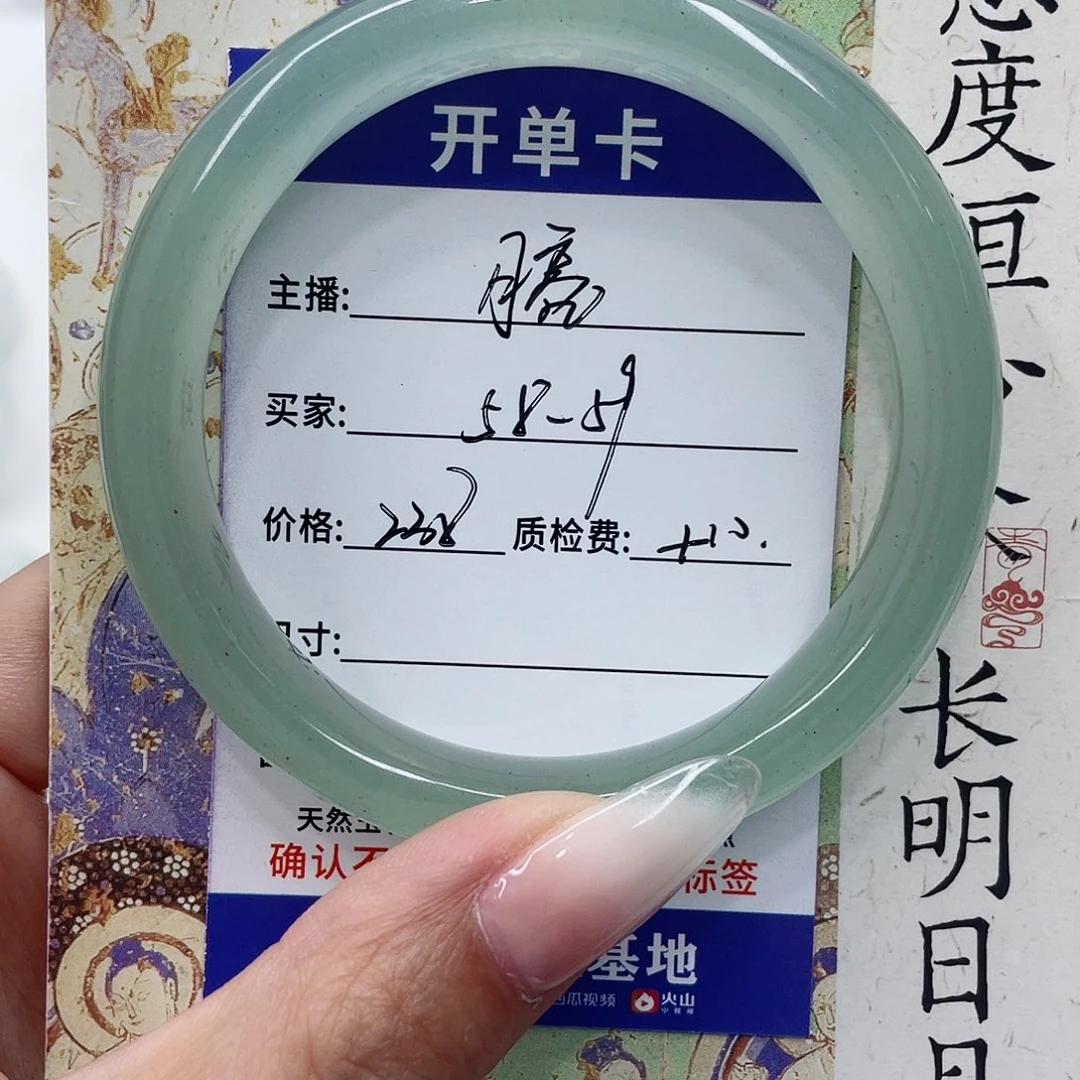 开单卡
主播:
买家: 58-59
价格: 238 质检费:
寸:
天然
确认不 标签
基地
西瓜视频 火山
小视频
度恒
长明日